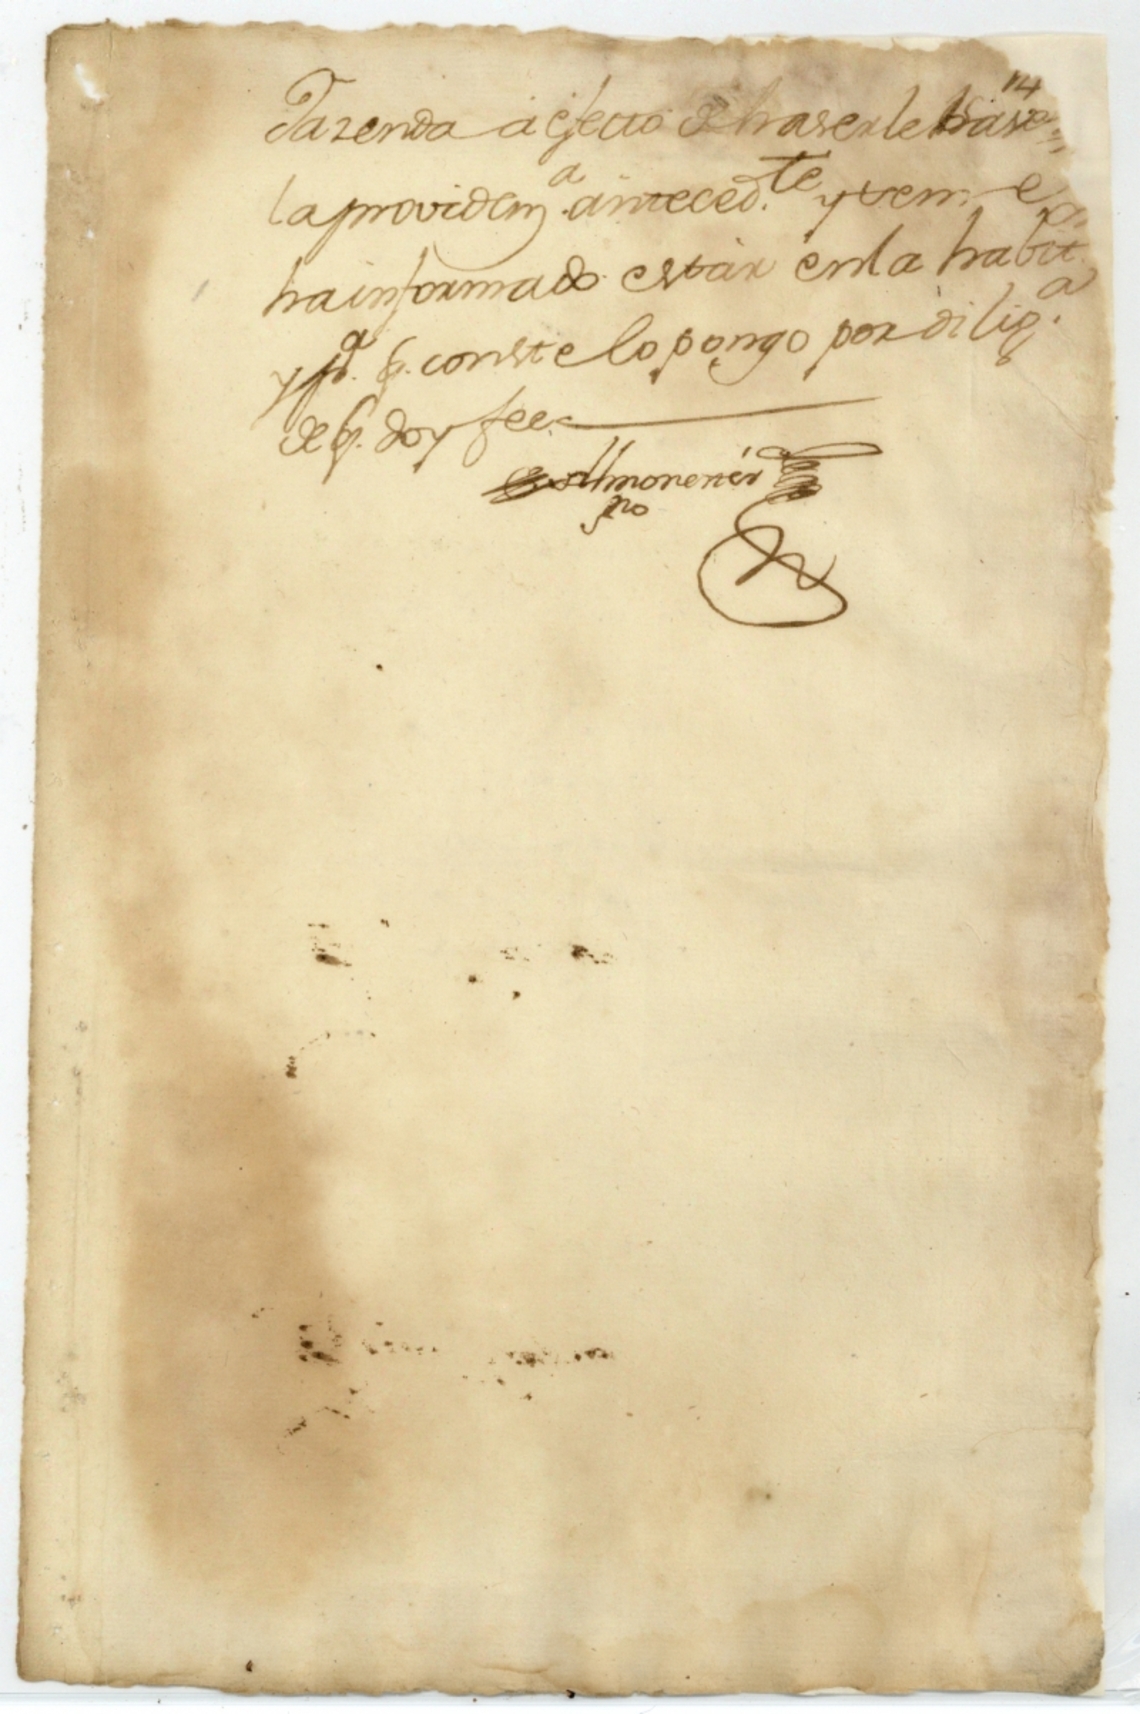 14
Fazenda a efecto de haserle
la providenª. anteced.te y
ha informado estar en la habit
y pª. q. conste lo pongo por dilig.ª
de q. doy fee
Almonener